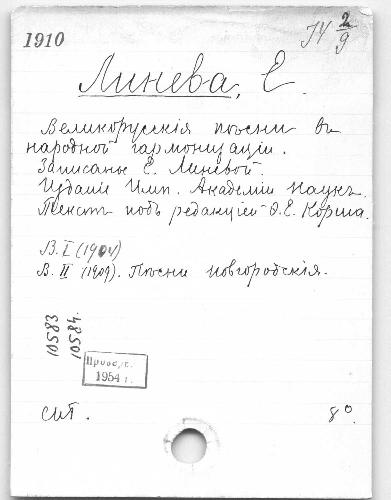 1910
IV 2/9
Линева, Е.
Великорусскія пѣсни въ
народной гармонизаціи.
Записаны Е. Линевой.
Изданіе Имп. Академіи Наукъ.
Текстъ подъ редакціей Ѳ. Е. Корша.
В. I (1904)
В. II (1909). Пѣсни новгородскія.
10583
10584.
1954 г.
СПб.
8°.